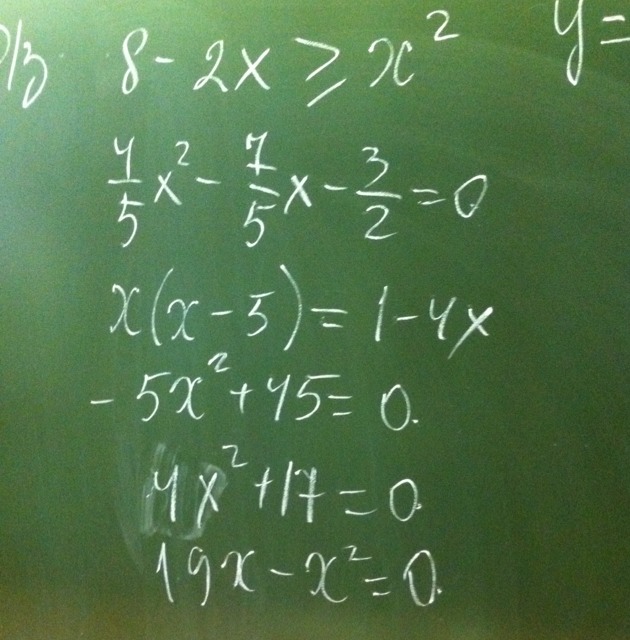 Д/з. 8 - 2x ≥ x² y =
4/5 x² - 7/5 x - 3/2 = 0
x(x - 5) = 1 - 4x
- 5x² + 45 = 0.
4x² + 17 = 0.
19x - x² = 0.